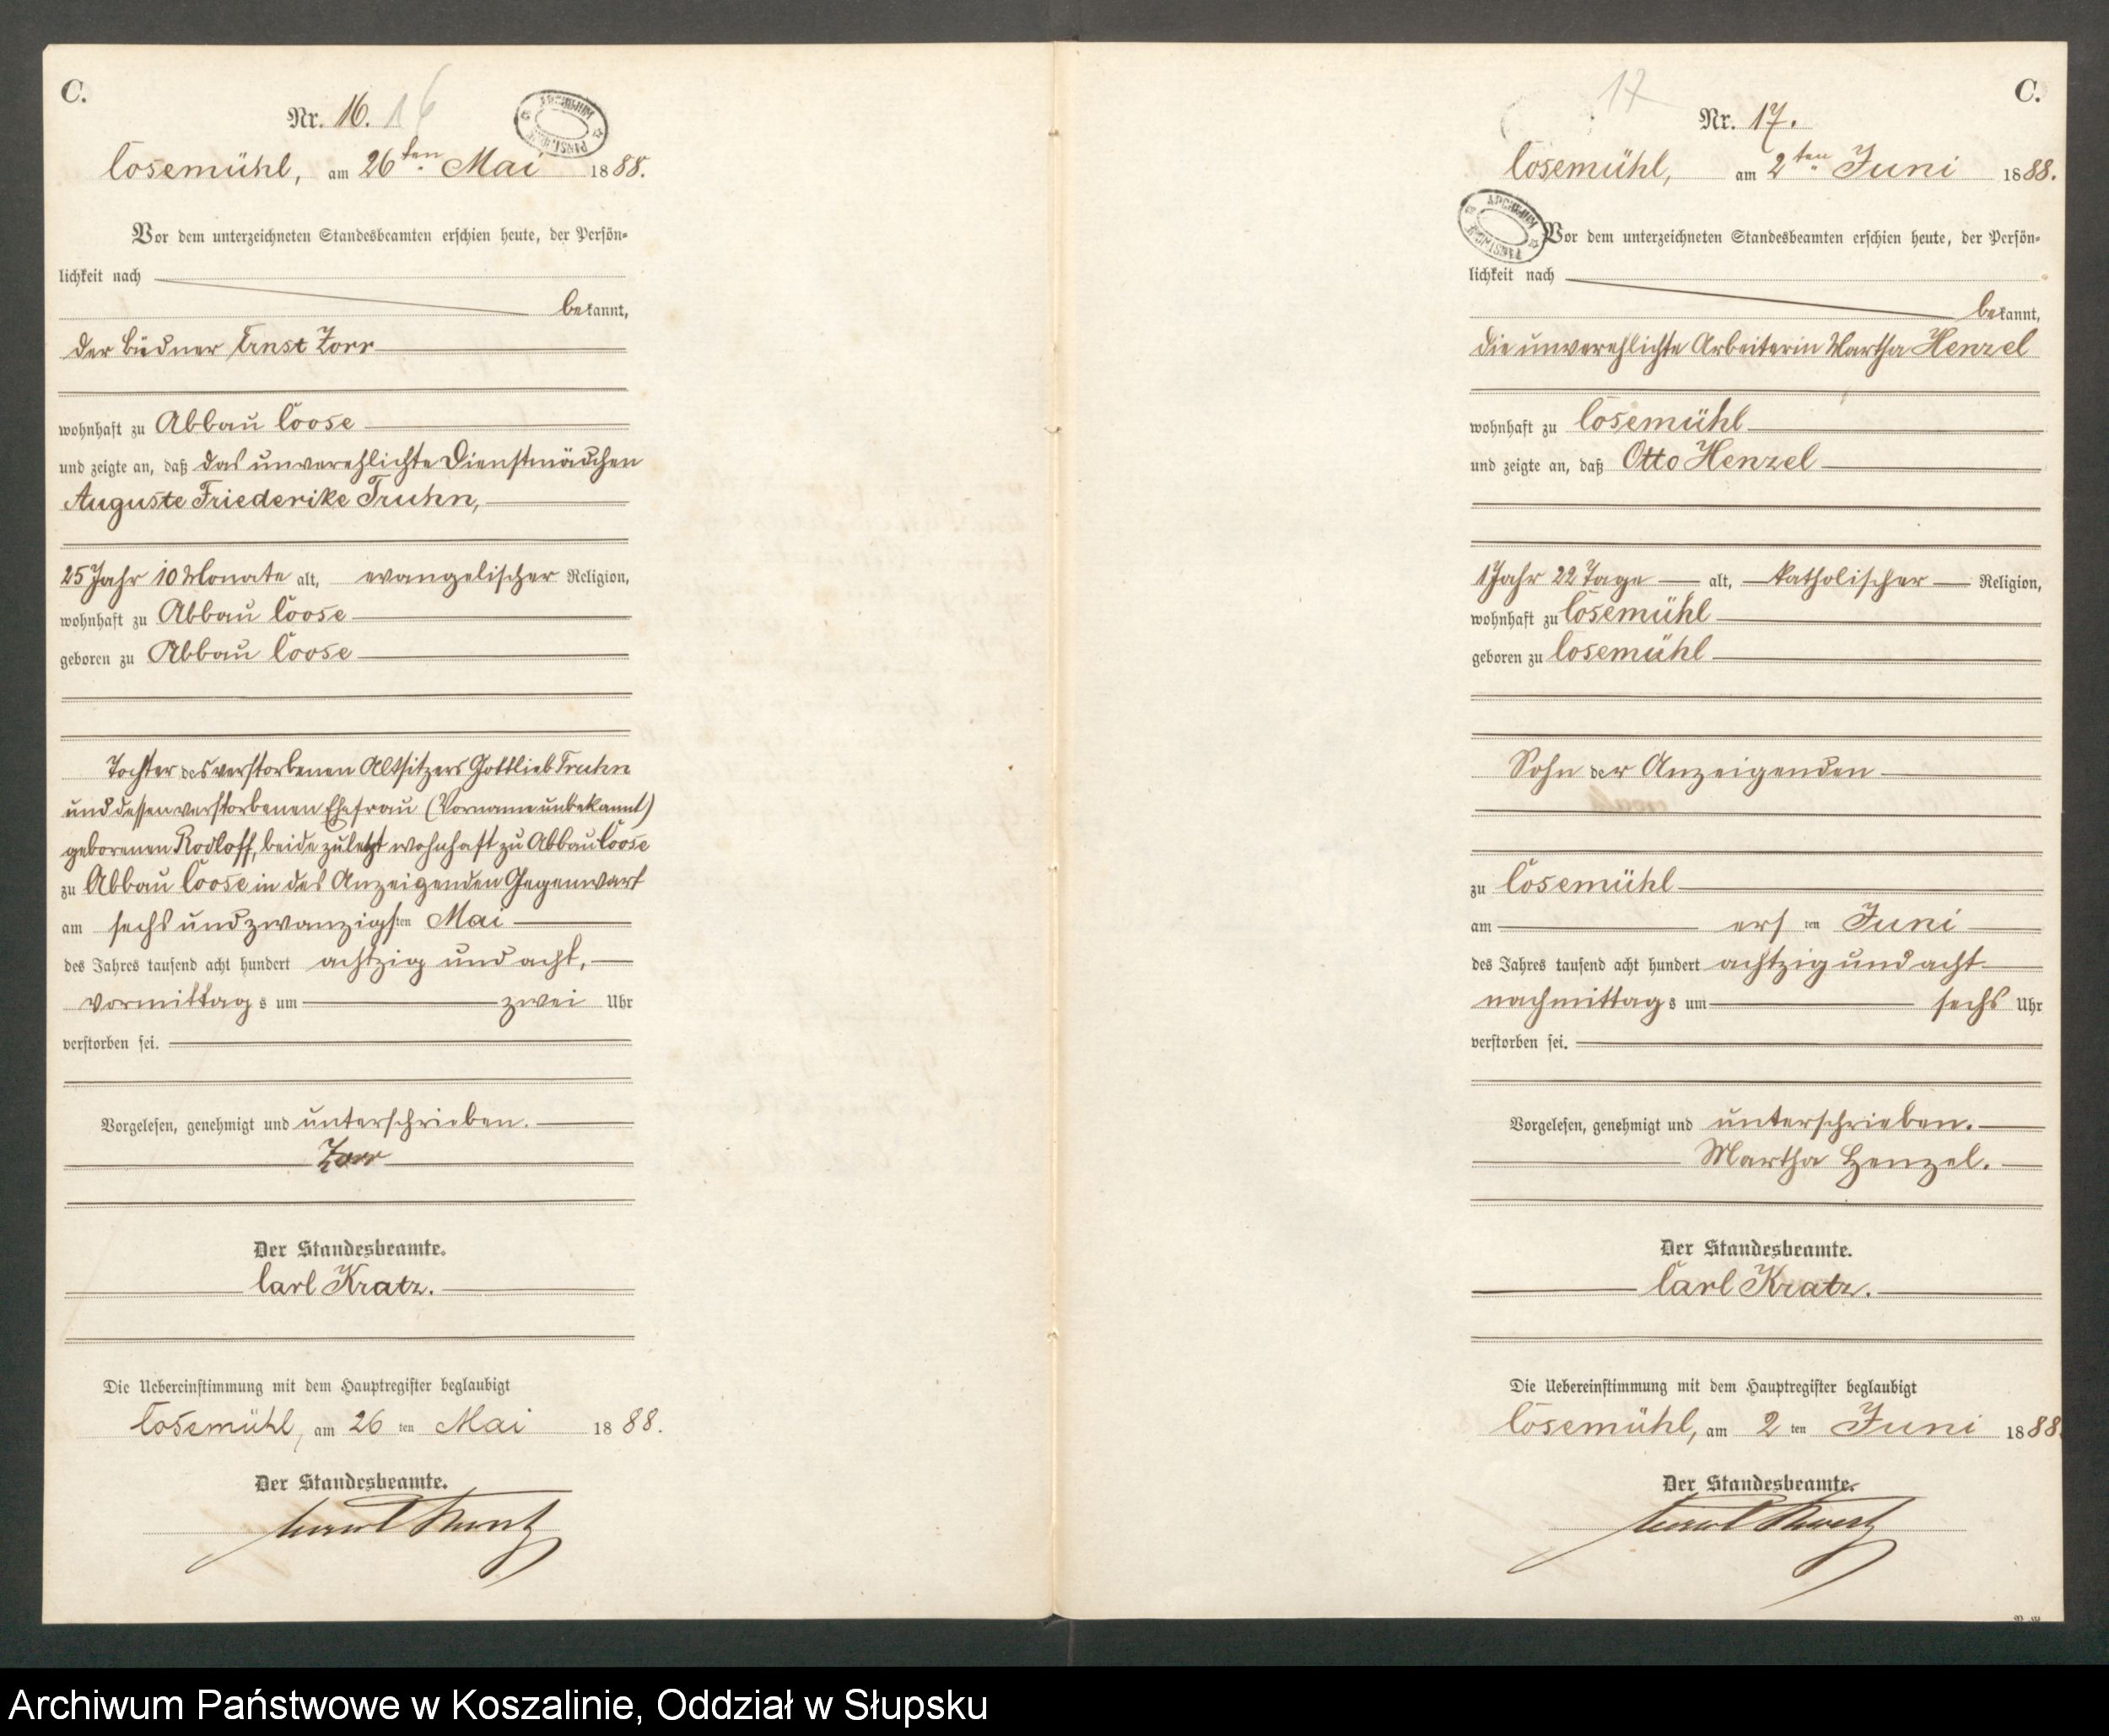 C.
Nr. 16. 16
ARCHIWUM PAŃSTWOWE
Cosemühl, am 26ten Mai 1888.
Vor dem unterzeichneten Standesbeamten erschien heute, der Persön-
lichkeit nach
bekannt,
der Büdner Ernst Zorr
wohnhaft zu Abbau Coose
und zeigte an, daß das unverehlichte Dienstmädchen
Auguste Friederike Truhn,
25 Jahr 10 Monate alt, evangelischer Religion,
wohnhaft zu Abbau Coose
geboren zu Abbau Coose
Tochter des verstorbenen Altsitzers Gottlieb Truhn
und dessen verstorbenen Ehefrau (Vorname unbekannt)
geborenen Rodloff, beide zuletzt wohnhaft zu Abbau Coose
zu Abbau Coose in des Anzeigenden Gegenwart
am sechs und zwanzigsten Mai
des Jahres tausend acht hundert achtzig und acht,
vormittags um zwei Uhr
verstorben sei.
Vorgelesen, genehmigt und unterschrieben.
Zorr
Der Standesbeamte.
Carl Kratz.
Die Uebereinstimmung mit dem Hauptregister beglaubigt
Cosemühl, am 26 ten Mai 1888.
Der Standesbeamte.
Carl Kratz
C.
17
Nr. 17.
Cosemühl, am 2ten Juni 1888.
ARCHIWUM PAŃSTWOWE
Vor dem unterzeichneten Standesbeamten erschien heute, der Persön-
lichkeit nach
bekannt,
die unverehlichte Arbeiterin Martha Henzel
wohnhaft zu Cosemühl
und zeigte an, daß Otto Henzel
1 Jahr 22 Tage alt, katholischer Religion,
wohnhaft zu Cosemühl
geboren zu Cosemühl
Sohn der Anzeigenden
zu Cosemühl
am ersten Juni
des Jahres tausend acht hundert achtzig und acht
nachmittags um sechs Uhr
verstorben sei.
Vorgelesen, genehmigt und unterschrieben.
Martha Henzel.
Der Standesbeamte.
Carl Kratz.
Die Uebereinstimmung mit dem Hauptregister beglaubigt
Cosemühl, am 2 ten Juni 1888.
Der Standesbeamte.
Carl Kratz
Archiwum Państwowe w Koszalinie, Oddział w Słupsku